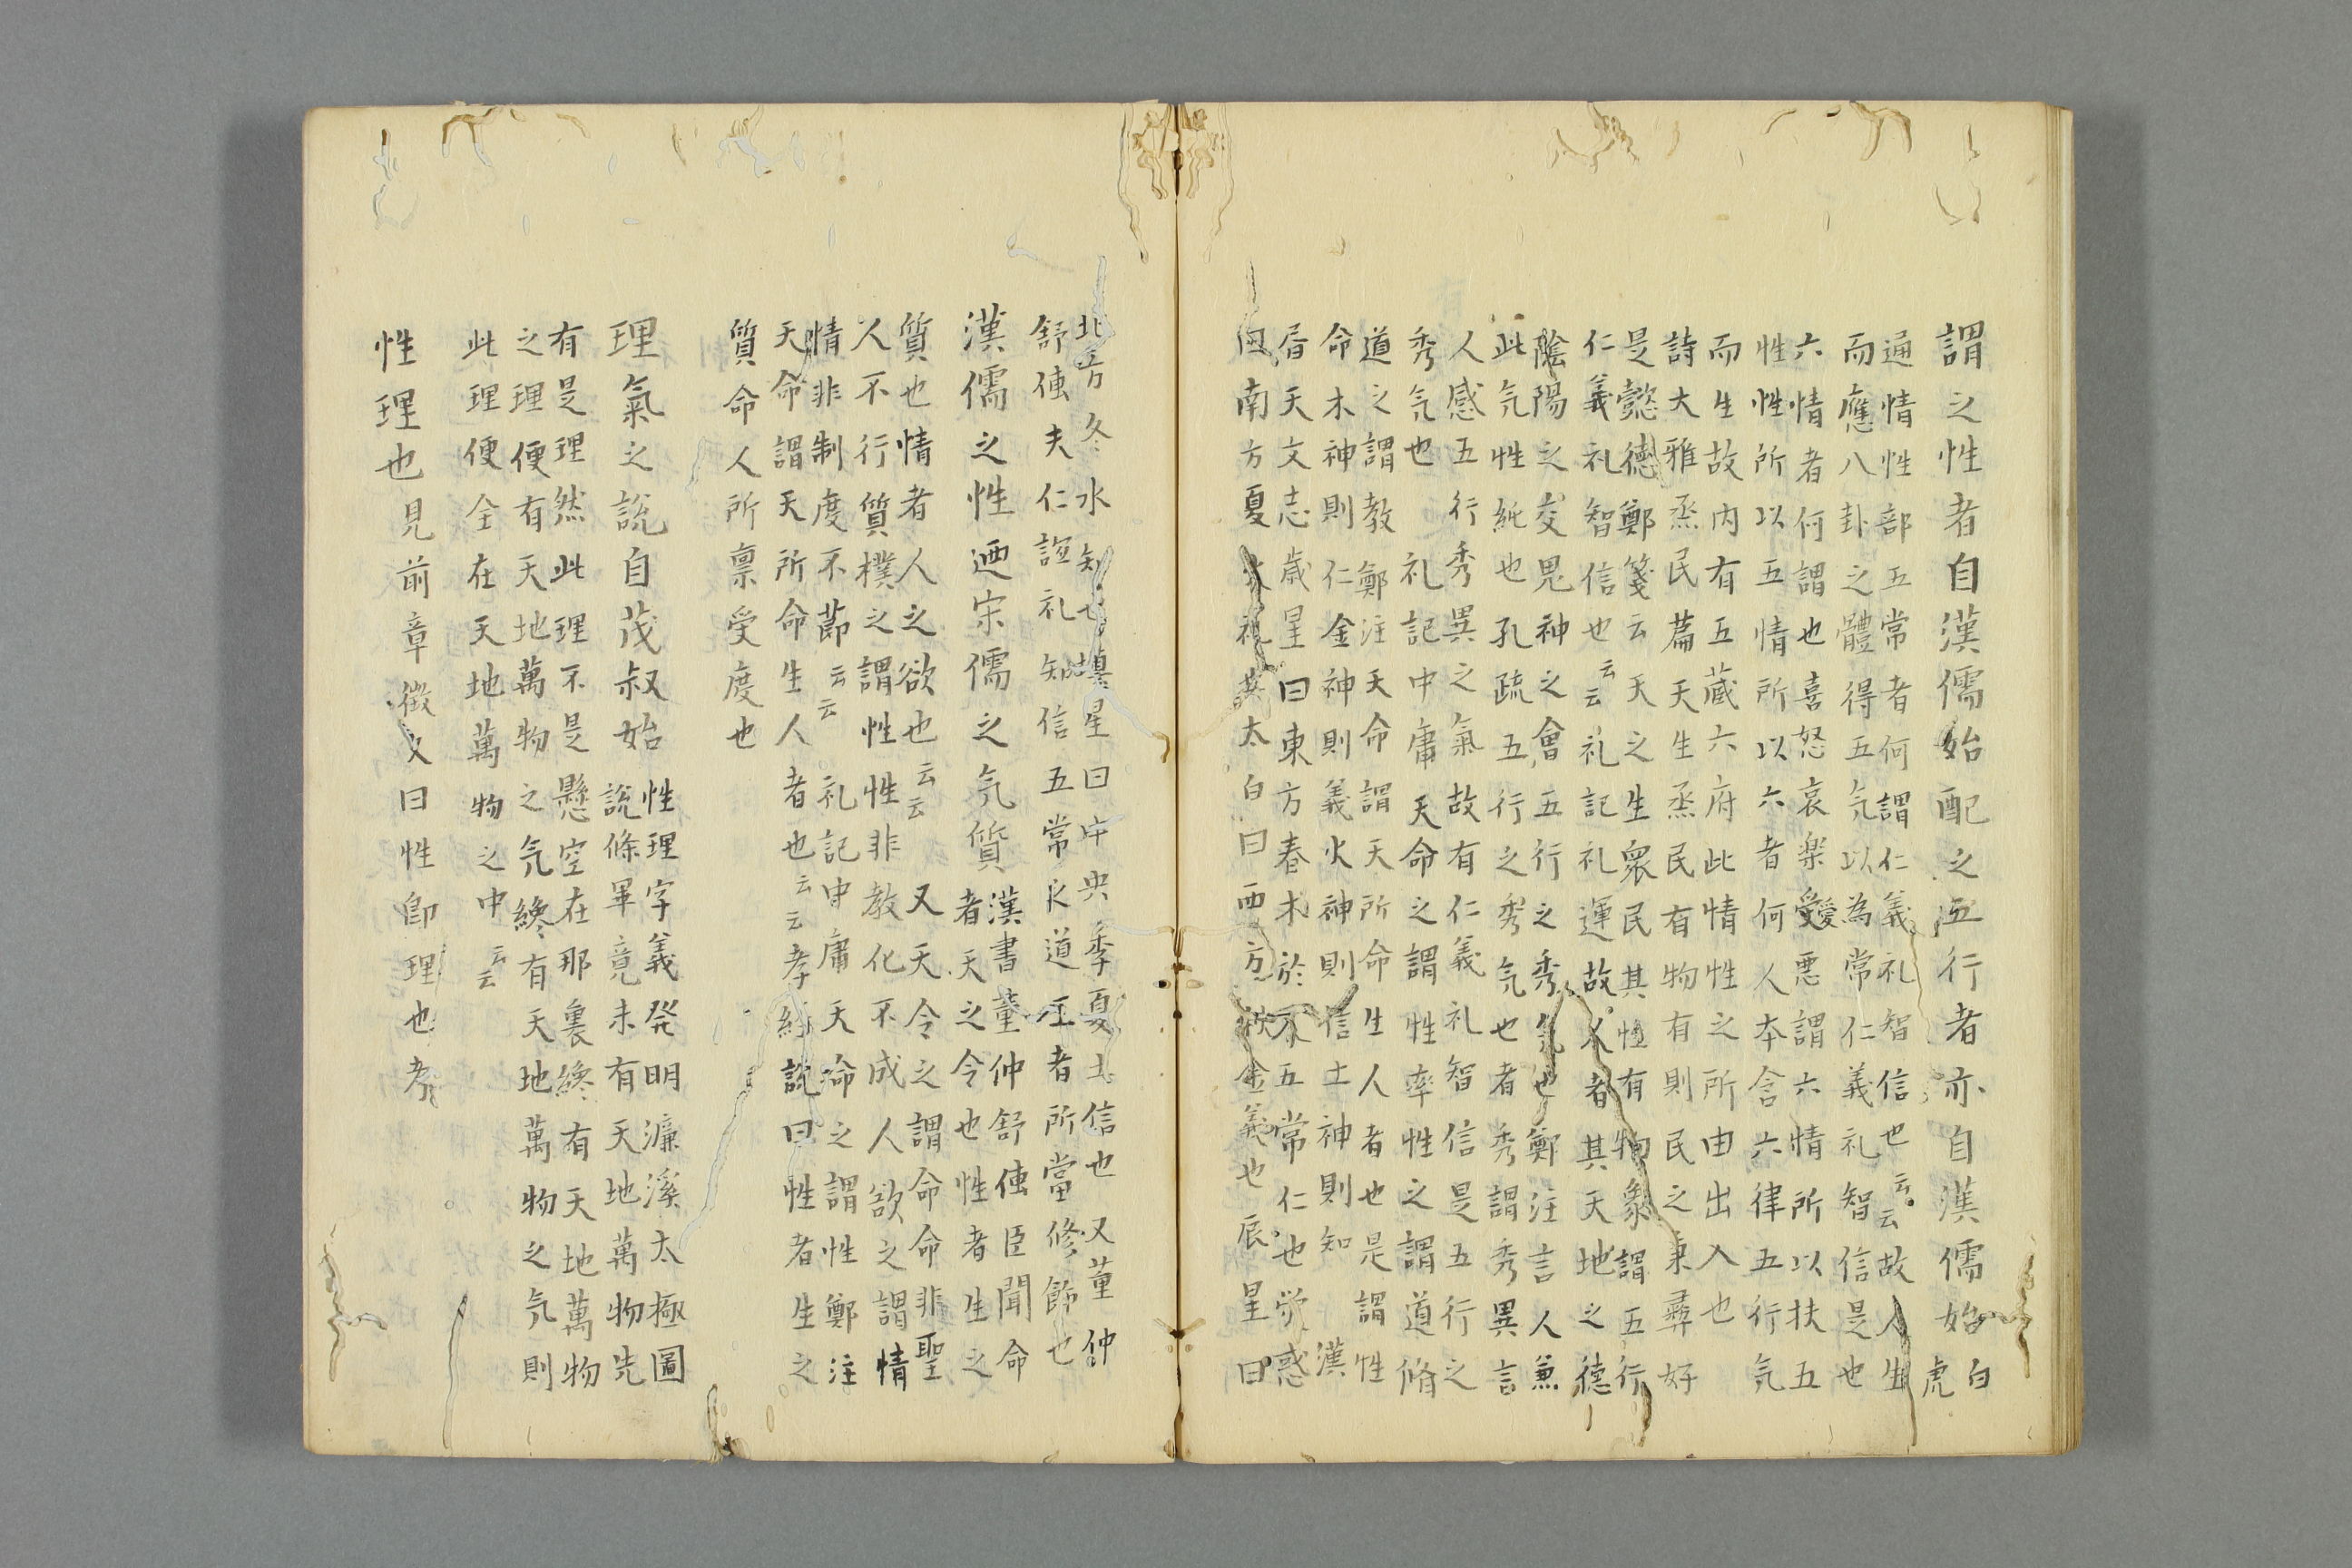 謂之性者自漢儒始配之五行者亦自漢儒始白虎
通情性部五常者何謂仁義礼智信也云云故人生
而應八卦之體得五気以為常仁義礼智信是也
六情者何謂也喜怒哀楽愛悪謂六情所以扶五
性性所以五情所以六者何人本含六律五行気
而生故内有五蔵六府此情性之所由出入也
詩大雅烝民篇天生烝民有物有則民之秉彝好
是懿徳鄭箋云天之生衆民其性有物象謂五行
仁義礼智信也云云礼記礼運故人者其天地之徳
陰陽之交鬼神之會五行之秀気也鄭注言人兼
此気性純也孔疏五行之秀気也者秀謂秀異言
人感五行秀異之氣故有仁義礼智信是五行之
秀気也礼記中庸天命之謂性率性之謂道脩
道之謂教鄭注天命謂天所命生人者也是謂性
命木神則仁金神則義火神則信土神則知漢
天文志歳星曰東方春木於五常仁也熒惑
曰南方夏火礼其太白曰西方秋金義也辰星曰
北方冬水知也塡星曰中央季夏土信也又董仲
舒傳夫仁誼礼知信五常之道王者所當修飭也
漢儒之性迺宋儒之気質漢書董仲舒傳臣聞命
者天之令也性者生之
質也情者人之欲也云云又天令之謂命命非聖
人不行質樸之謂性性非教化不成人欲之謂情
情非制度不節云云礼記中庸天命之謂性鄭注
天命謂天所命生人者也云云孝経説曰性者生之
質命人所禀受度也
理氣之說自茂叔始性理字義発明濂溪太極圖
說條畢竟未有天地萬物先
有是理然此理不是懸空在那裏纔有天地萬物
之理便有天地萬物之気纔有天地萬物之気則
此理便全在天地萬物之中云云
性理也見前章徴文曰性卽理也考